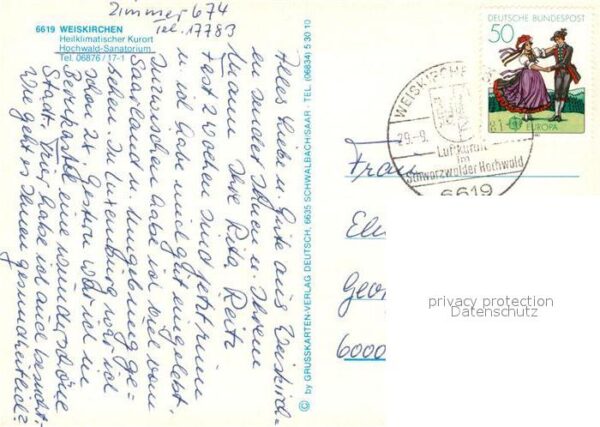 Zimmer 674
Tel. 17783
6619 WEISKIRCHEN
Heilklimatischer Kurort
Hochwald-Sanatorium
Tel. 06876 / 17-1
Alles Liebe u. Gute aus Weiskirch-
en sendet Ihnen u. Ihrem
Mann Ihre Rita Reitz
Fast 2 Wochen sind jetzt rum
u. ich habe mich gut eingelebt.
Inzwischen habe ich viel vom
Saarland u. Umgebung ge-
sehen. In Luxemburg war ich
schon 2x. Gestern war ich in
Bernkastel eine wunderschöne
Stadt. Trier habe ich auch besucht.
Wie geht es Ihnen gesundheitlich?
© by GRUSSKARTEN-VERLAG DEUTSCH, 6635 SCHWALBACH/SAAR · TEL. (06834) 5 30 10
DEUTSCHE BUNDESPOST
50
EUROPA
WEISKIRCHEN
29.-9. 81
Luftkurort
im
Schwarzwälder Hochwald
6619
Frau
Geor
6000
privacy protection
Datenschutz